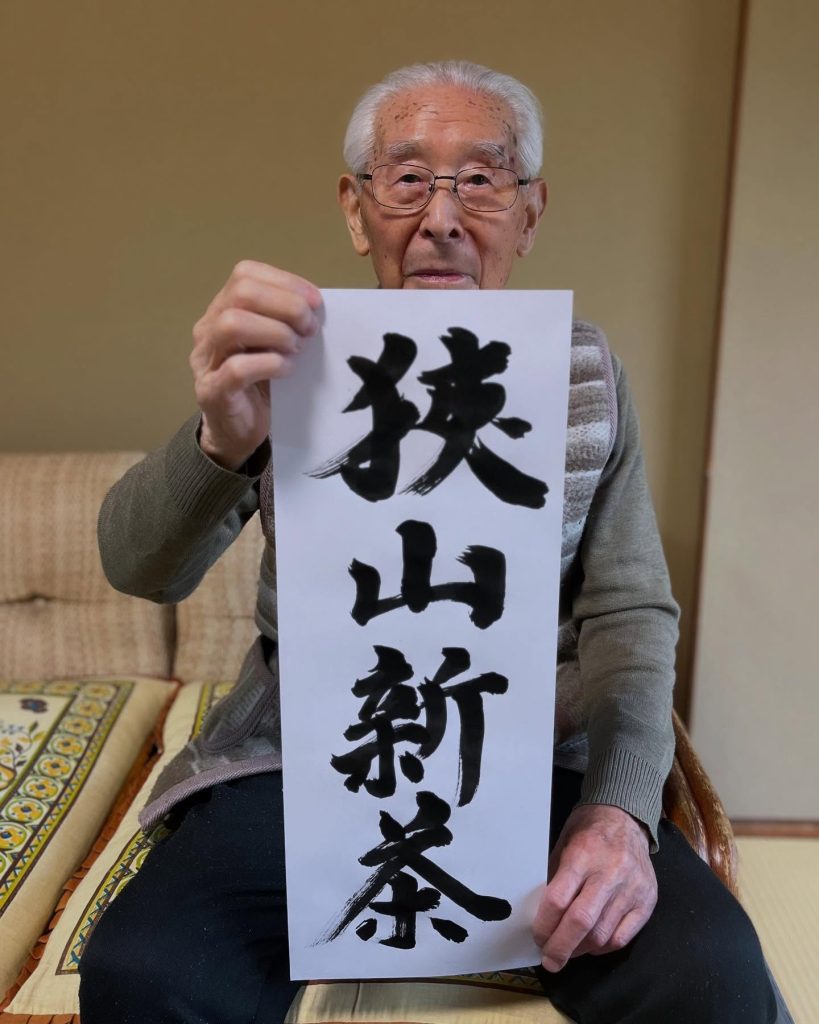 狭山新茶